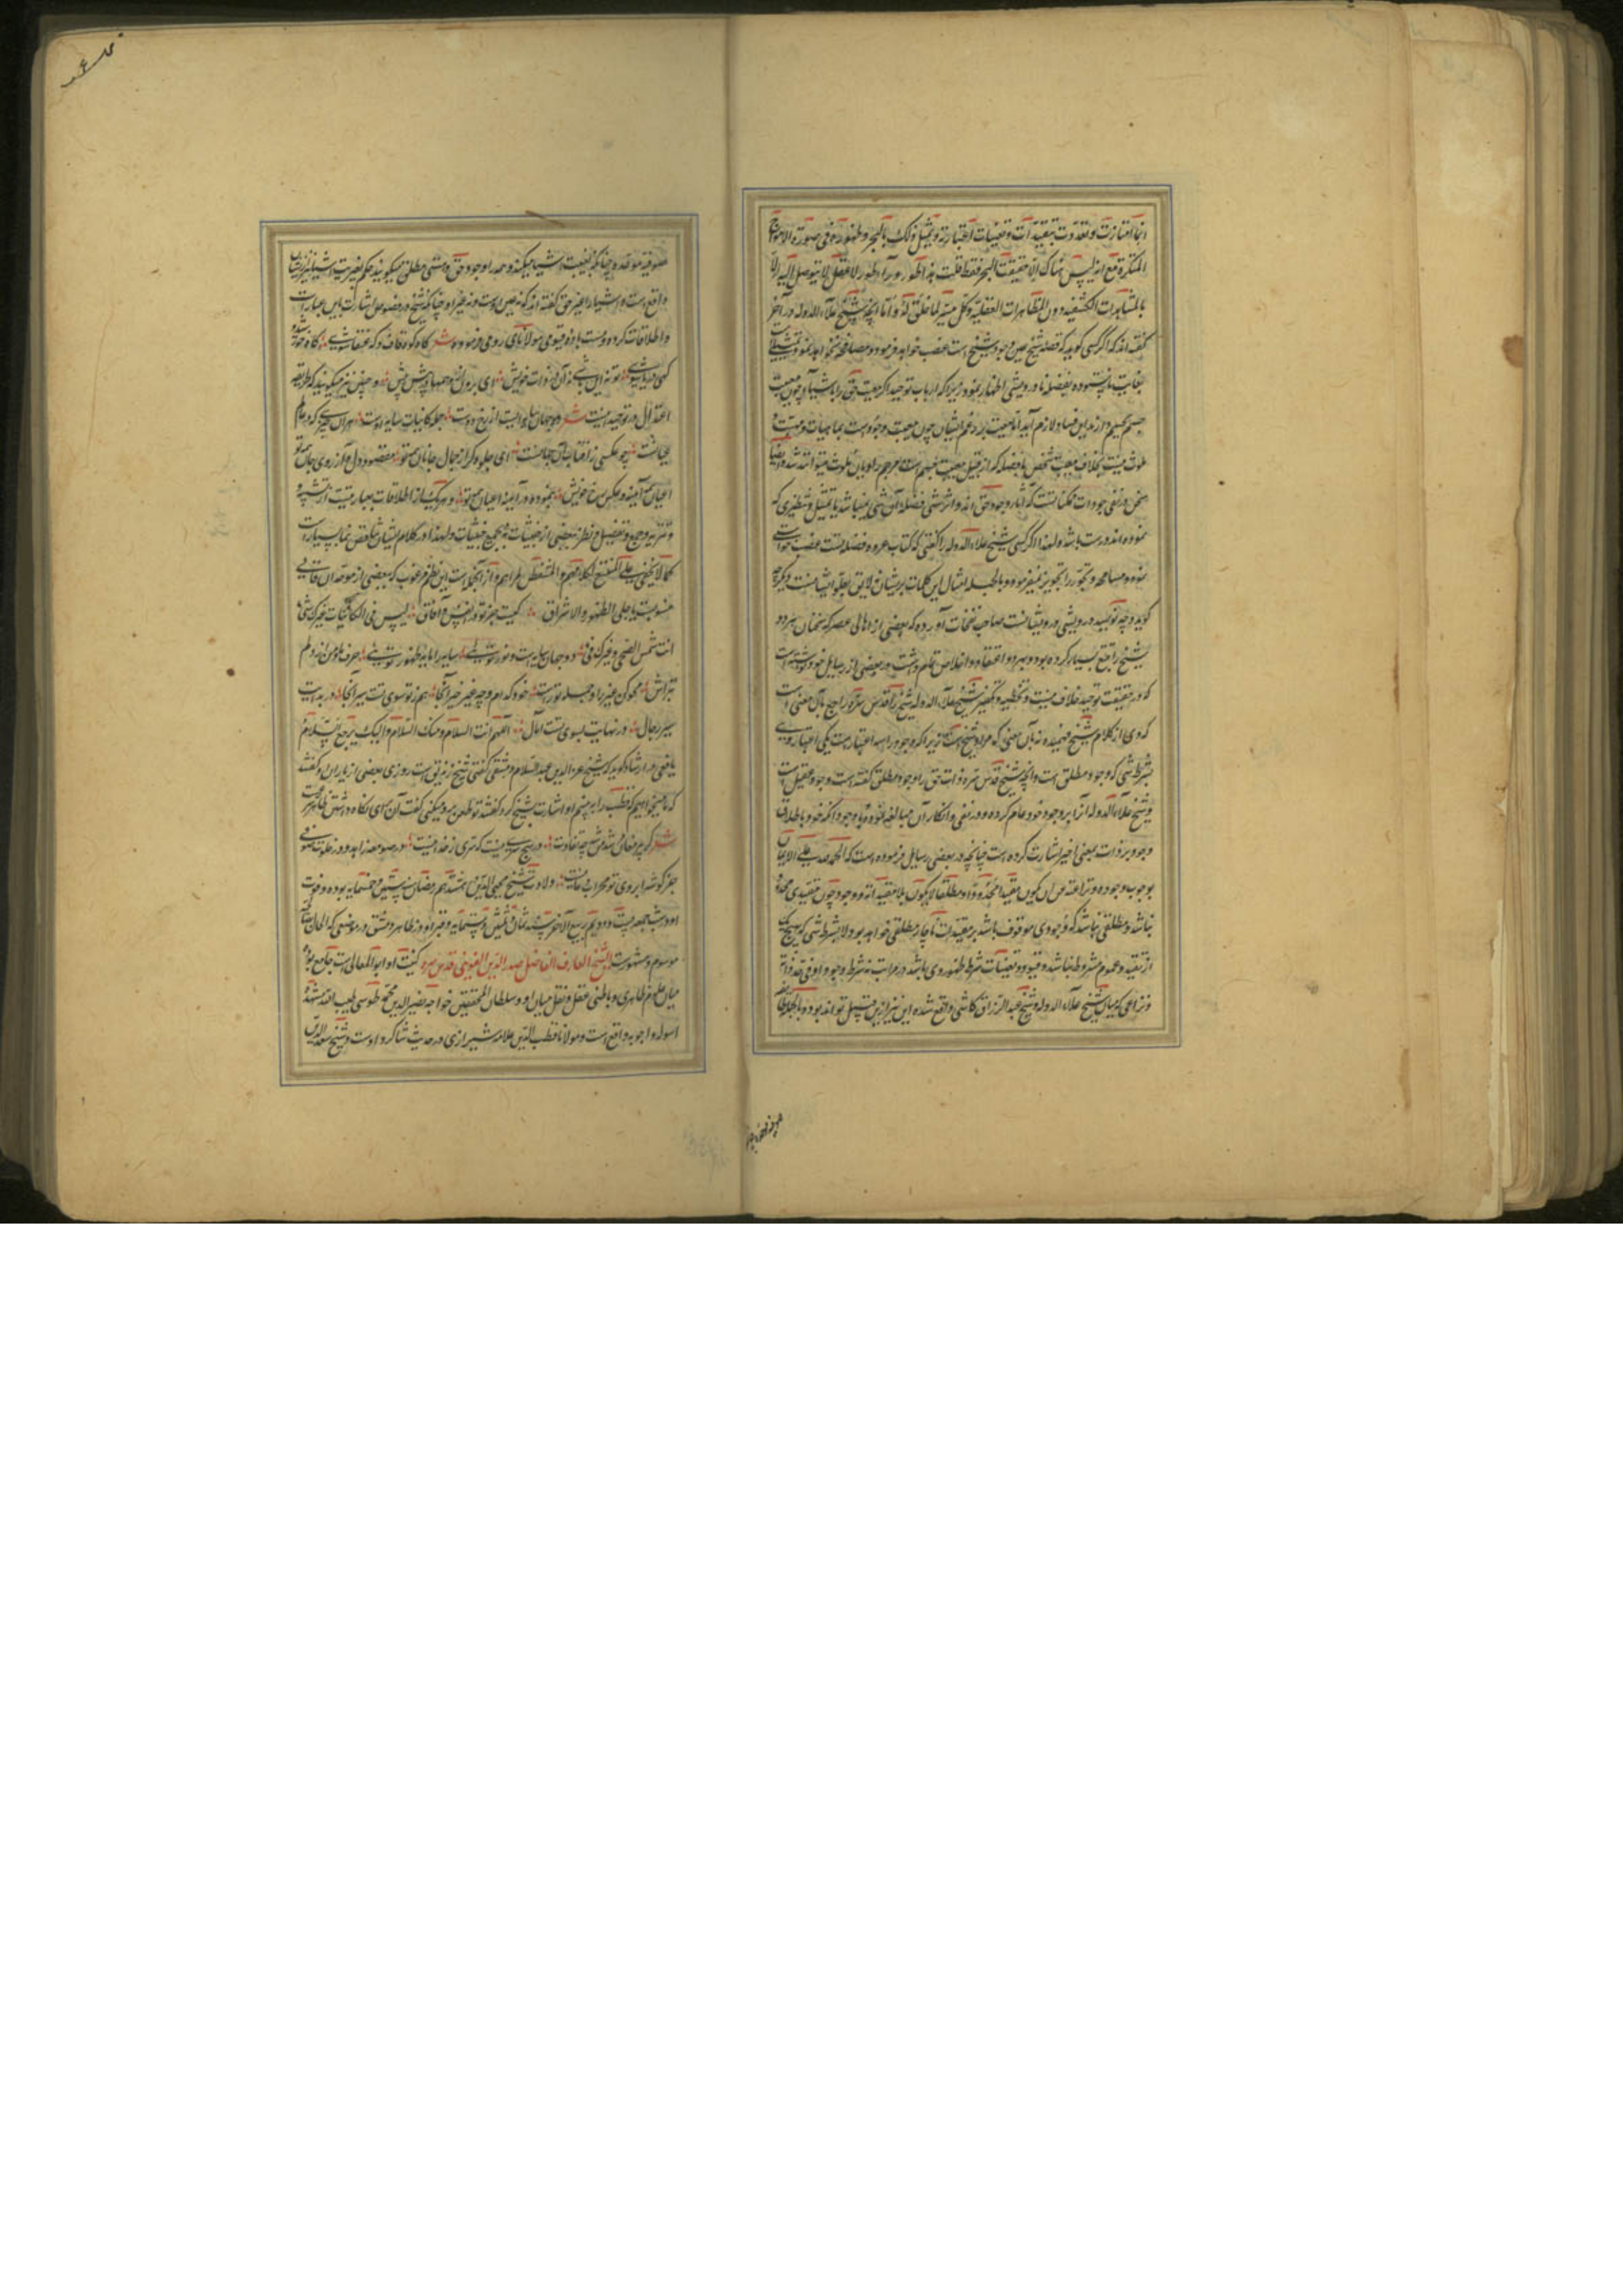 انما امتازت و تعددت بتقیدات و تعینات اعتباریة و یمثل ذلک بالبحر و ظهوره فی صورة الامواج
المتکثرة مع انه لیس هناک الا حقیقت البحر فقط قلت هذا طور وراء طور العقل لا یتوصل الیه الا
بالمشاهدات الکشفیه دون المناظرات العقلیة و کل میسر لما خلق له و اما آنچه شیخ علاء الدوله در آخر
گفته اند که اگر کسی گوید که فضله شیخ عین وجود شیخ است غضب خواهد فرمود و مسامحه نخواهد نمود
بغایت ناپسندیده بفضله نادرویشی اظهار نموده زیرا که ارباب توحید اگر معیت حق را باشیا چون معیت
جسم بجسم دارند این فساد لازم آید اما معیت بزعم ایشان چون معیت وجود است بماهیات و
ملوث نیست بخلاف معیت شخص بافضله که از قبیل معیت جسم است بجسم
سخن در نفی وجودات ممکنات است که آثار وجود حق اند و اثر شی فضله آن شی نمیباشد
نموده اند درست باشد و لهذا اگر کسی شیخ علاء الدوله را گفتی که کتاب عروه فضله تست غضب
نموده و مسامحه و تجوز را تجویز نمیفرموده و بالجمله امثال این کلمات پریشان نه لایق بعلو ایشانست
گوید و چه نومیدی درویشی درویشانست صاحب نفحات آورده که بعضی از اهالی عصر که سخنان هر دو
شیخ را تتبع بسیار کرده بود و بهر دو اعتقاد و اخلاص تمام داشت در بعضی از رسایل خود نوشته است
که در حقیقت توحید خلاف نیست و تخطیه و تکفیر شیخ علاء الدوله شیخ را قدس سره راجع بآن معنی است
که وی از کلام شیخ فهمیده نه بآن معنی که مراد شیخ است زیرا که وجود را سه اعتبار است یکی اعتبار وی
بشرط شی که وجود مطلق است و آنچه شیخ قدس سره ذات حق را وجود مطلق گفته است
و شیخ علاء الدوله آنرا بر وجود خود عام کرده و در نفی و انکار آن مبالغه نموده با وجود آنکه خود باطلاق
وجود بر ذات بمعنی اخیر اشارت کرده است چنانچه در بعضی رسایل فرموده است که الحمد لله علی الایمان
بوجوب وجوده و نزاهته عن ان یکون مقیدا محدودا و مطلقا لا یکون بلا مقیداته وجود چون مقیدی محدود
نباشد و مطلقی نباشد که وجود وی موقوف باشد بر مقیدات ناچار مطلقی خواهد بود لا بشرط شی که بهیچ یک
از تقید و عموم مشروط نباشد و قیود و تعینات شرط ظهور وی باشد در مراتب نه شرط وجود او فی حد ذاته
و نزاعی که میان شیخ علاء الدوله و شیخ عبد الرزاق کاشی واقع شده این نیز ازین قبیل تواند بود و بالجمله
صوفیه موحده چنانکه بعینیت اشیا میکنند و همه را وجود حق و هستی مطلق میگویند حکم بغیریت اشیا نیز
واقع است و اشیا را غیر حق گفته اند که نه عین اوست و نه غیر او چنانکه شیخ در فصوص اشارت باین عبارات
و اطلاقات کرده و مست باده قیومی مولانای رومی فرموده شعر گاه کوه قاف و گه عنقا شوی گاه خورشید و
گهی دریا شوی تو نه این باشی نه آن در ذات خویش ای برون از وهمها و پیش پیش و چنین نیز میگویند که طریقه
اعتدال در توحید اینست شعر جهان سایه ایست از رخ دوست جمله کاینات سایه اوست هر آن چیزی که در عالم
عیانست چو عکسی ز آفتاب آن جهانست ای جلوه گر از جمال جانان همه تو مقصود دل و آرزوی جان همه تو
اعیان همه آینه و عکس رخ خویش بنموده در آینه اعیان همه تو و هر یک از اطلاقات بعبارتیست از تشبیه
و تنزیه و جمع و تفصیل و نظر ببعضی از حیثیات نه بجمیع حیثیات و لهذا در کلام ایشان تناقض نما بسیار است
کما لا یخفی علی المتتبع لکلامهم و المتفطن لمرامهم و از آنجمله است این نظم مرغوب که ببعضی از موحدان
منسوبست باجلی الظهور و الاشراق کیست جز تو در انفس و آفاق لیس فی الکائنات غیرک شی
انت شمس الضحی و غیرک فی دو جهان سایه است و نور توئی سایه را مایه ظهور توئی حرف ما و من از دلم
بتراش محو کن غیر را و جمله تو باش خود کدام و چه غیر خیر آنجا هم ز تو سوی تست سیر آنجا در بدایت
سیر رجال در نهایت بسوی تست آمال اللهم انت السلام و منک السلام و الیک یرجع السلام
یافعی در ارشاد گوید که شیخ عز الدین عبد السلام دمشقی گفتی شیخ زندیق است روزی بعضی از یاران او گفتند
که ما میخواهیم که قطب را بر ببینیم او اشارت بشیخ کرد گفتند تو طعن در وی میکنی گفت آن برای نگاه داشتن ظاهر
شعر گر پیر مغان مرشد من شد چه تفاوت در هیچ سری نیست که سری ز خدا نیست در صومعه زاهد و در خلوت صوفی
جز گوشه ابروی تو محراب دعا نیست ولادت شیخ محیی الدین در هفدهم رمضان سنه ستین و خمسمایه بوده و فوت
او در شب جمعه بیست و دویم ربیع الآخر سنه ثمان و ثلثین و ستمایه و قبر او در ظاهر دمشق در موضعی که الحان
موسوم و مشهور است الشیخ العارف الفاضل صدر الدین القونوی قدس سره کنیت او ابو المعالی است جامع بود
میان علوم ظاهری و باطنی عقل و نقل میان او و سلطان المحققین خواجه نصیر الدین محمد طوسی طیب الله مشهده
اسوله و اجوبه واقع است و مولانا قطب الدین علامه شیرازی در حدیث شاگرد اوست و شیخ سعد الدین